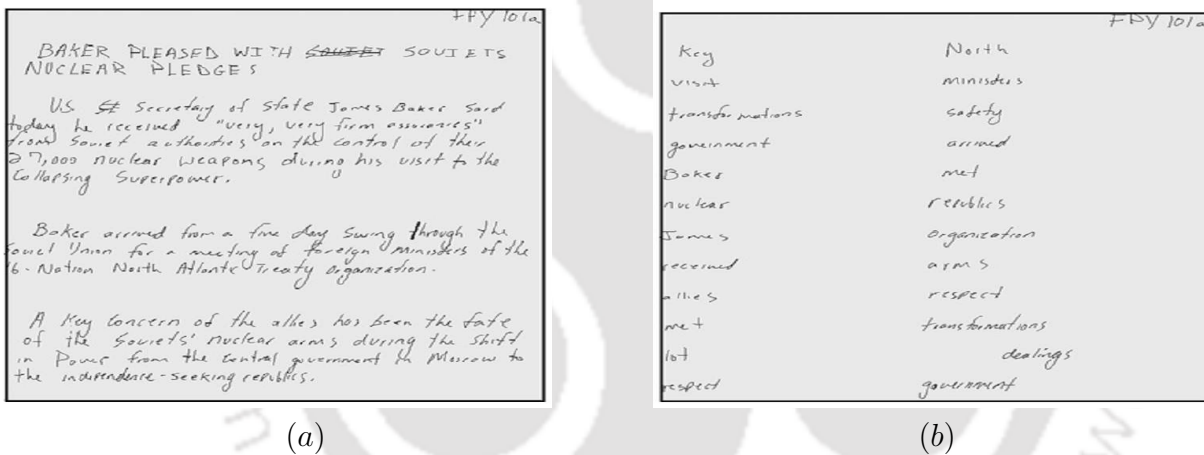 FPY 101a
BAKER PLEASED WITH SOVIETS
NUCLEAR PLEDGES
U.S. Secretary of State James Baker said
today he received "very, very firm assurances"
from Soviet authorities on the control of their
27,000 nuclear weapons during his visit to the
Collapsing Superpower.
Baker arrived from a five day swing through the
Soviet Union for a meeting of foreign ministers of the
16-Nation North Atlantic Treaty Organization.
A Key Concern of the allies has been the fate
of the Soviets' nuclear arms during the shift
in Power from the central government in Moscow to
the independence-seeking republics.
(a)
FPY 101a
Key North
visit ministers
transformations safety
government arrived
Baker met
nuclear republics
James Organization
received arms
allies respect
met transformations
lot dealings
respect government
(b)